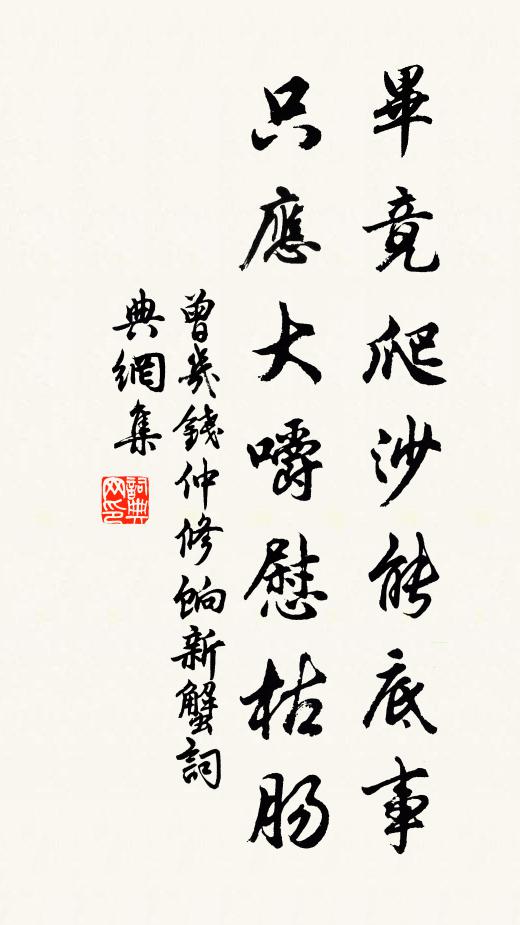 畢竟爬沙能底事
只應大嚼慰枯肠
曾幾錢仲修餉新蟹詞
典網集
詞典
网印